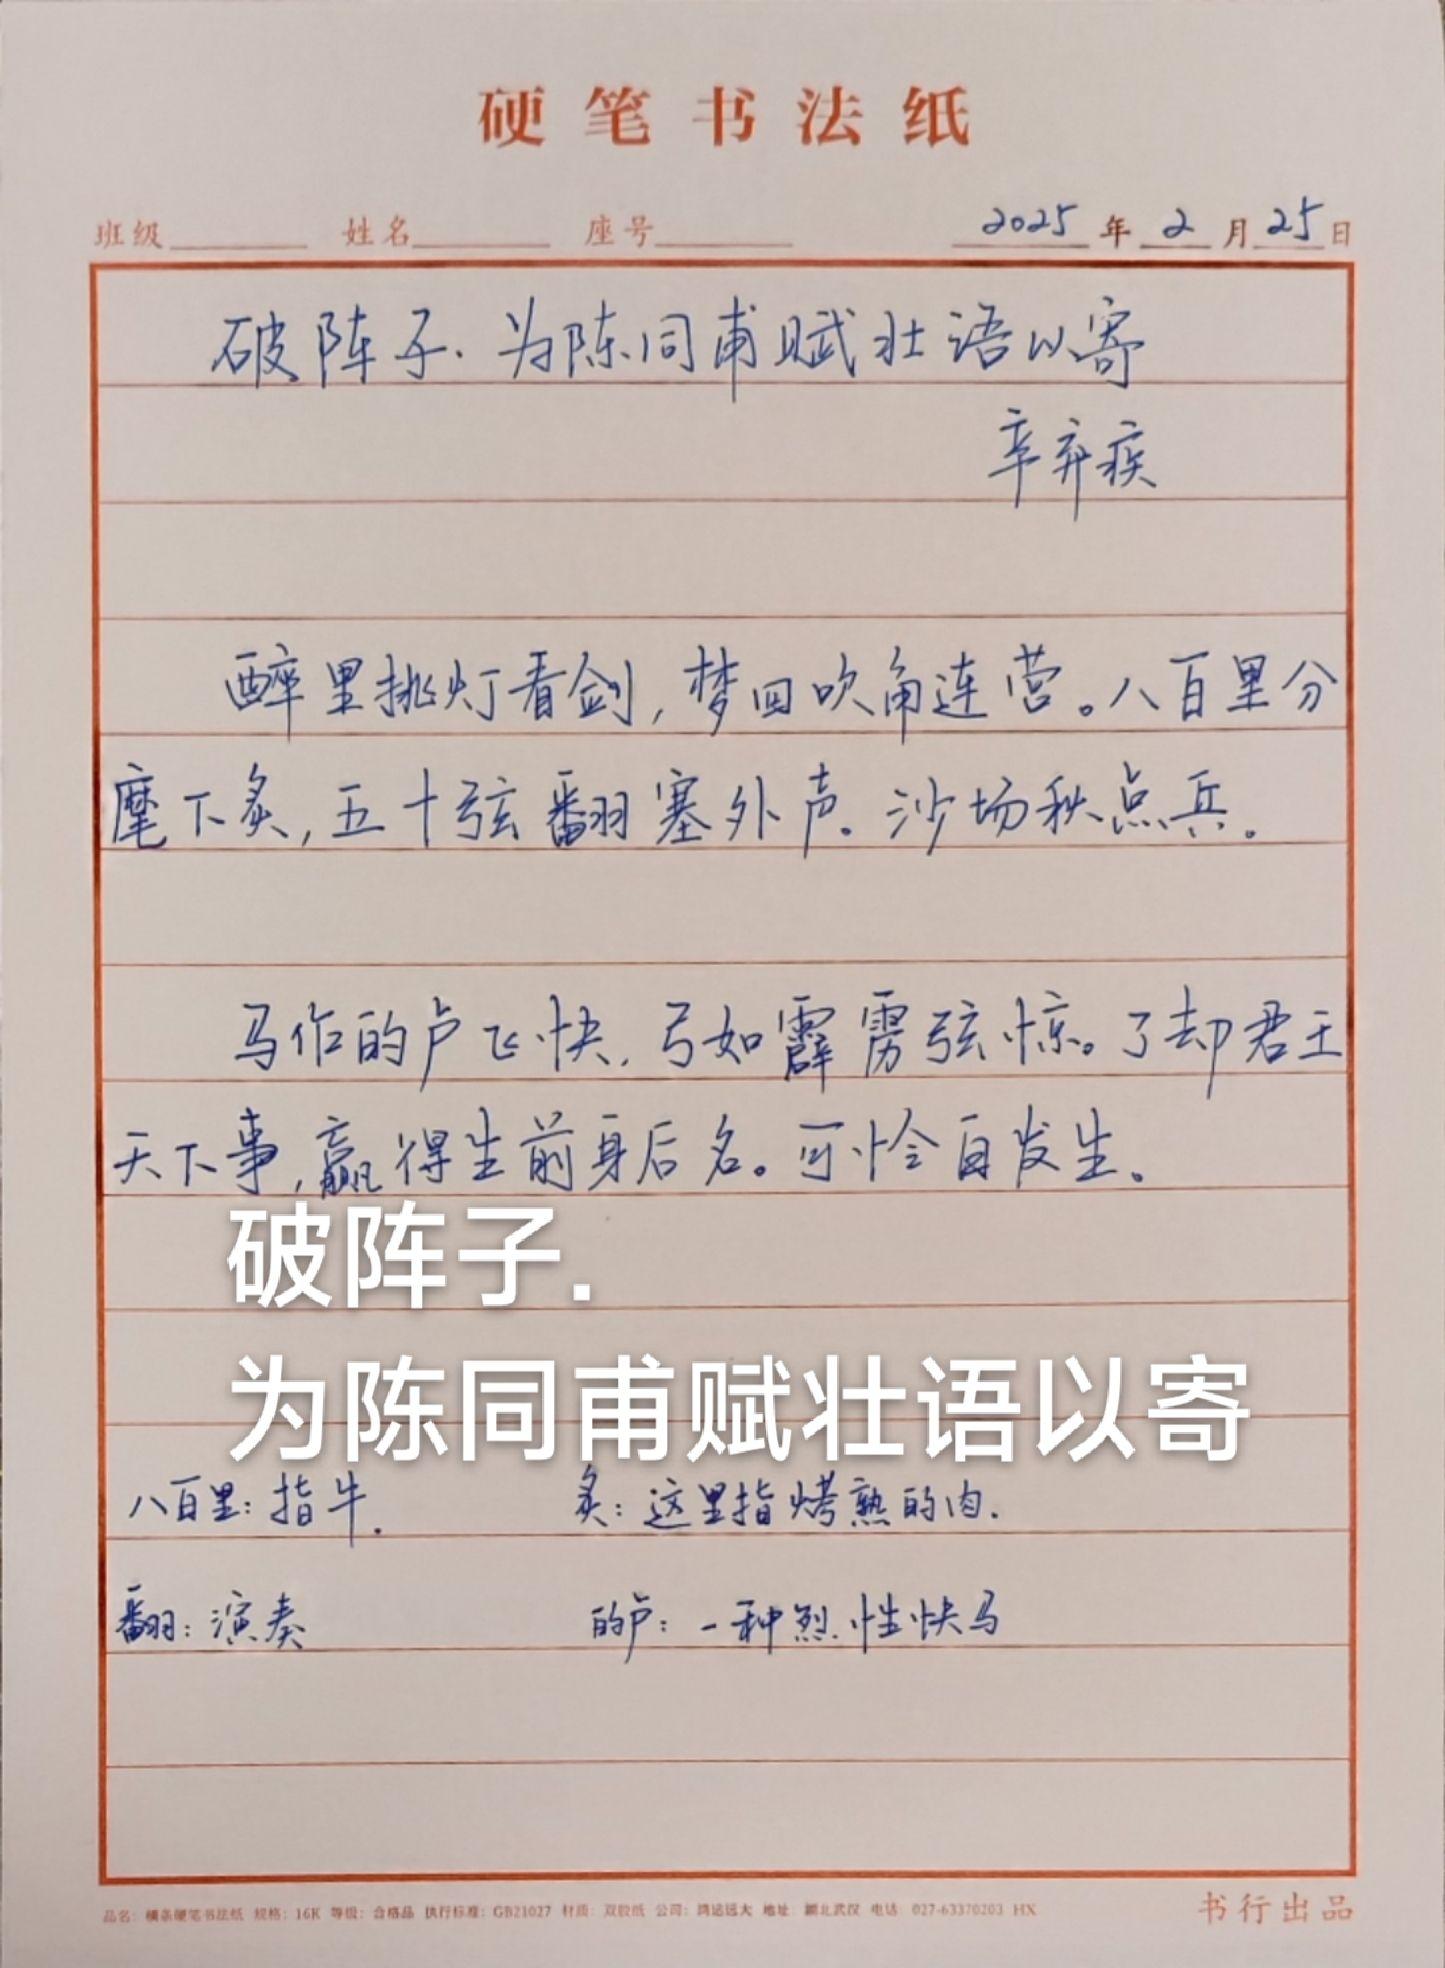 硬笔书法纸
班级 姓名 座号 2025年2月25日
破阵子·为陈同甫赋壮语以寄
辛弃疾
醉里挑灯看剑,梦回吹角连营。八百里分
麾下炙,五十弦翻塞外声。沙场秋点兵。
马作的卢飞快,弓如霹雳弦惊。了却君王
天下事,赢得生前身后名。可怜白发生。
破阵子.
为陈同甫赋壮语以寄
八百里:指牛. 炙:这里指烤熟的肉.
翻:演奏 的卢:一种烈性快马
品名:横条硬笔书法纸 规格:16K 等级:合格品 执行标准:GB21027 材质:双胶纸 公司:鸿运远大 地址:湖北武汉 电话:027-63370203 HX
书行出品